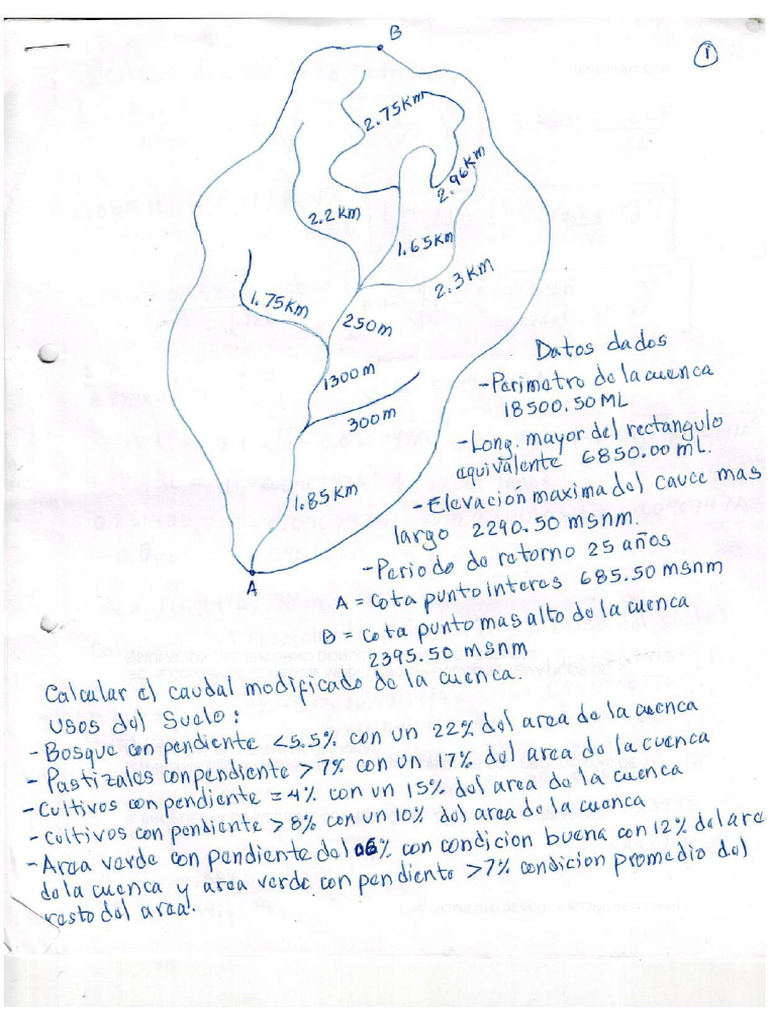 B
1
2.75Km
2.96Km
2.2 Km
1.65Km
2.3 Km
1.75Km
250m
1300m
300m
1.85Km
A
Datos dados
- Perimetro de la cuenca
18500.50 ML
- Long. mayor del rectangulo
equivalente 6850.00 mL.
- Elevacion maxima del cauce mas
largo 2290.50 msnm.
- Periodo de retorno 25 años
A = Cota punto interes 685.50 msnm
B = Cota punto mas alto de la cuenca
2395.50 msnm
Calcular el caudal modificado de la cuenca.
Usos del Suelo:
- Bosque con pendiente <5.5% con un 22% del area de la cuenca
- Pastizales con pendiente >7% con un 17% del area de la cuenca
- Cultivos con pendiente = 4% con un 15% del area de la cuenca
- Cultivos con pendiente >8% con un 10% del area de la cuenca
- Area verde con pendiente del 06% con condicion buena con 12% del are
de la cuenca y area verde con pendiente >7% condicion promedio del
resto del area.